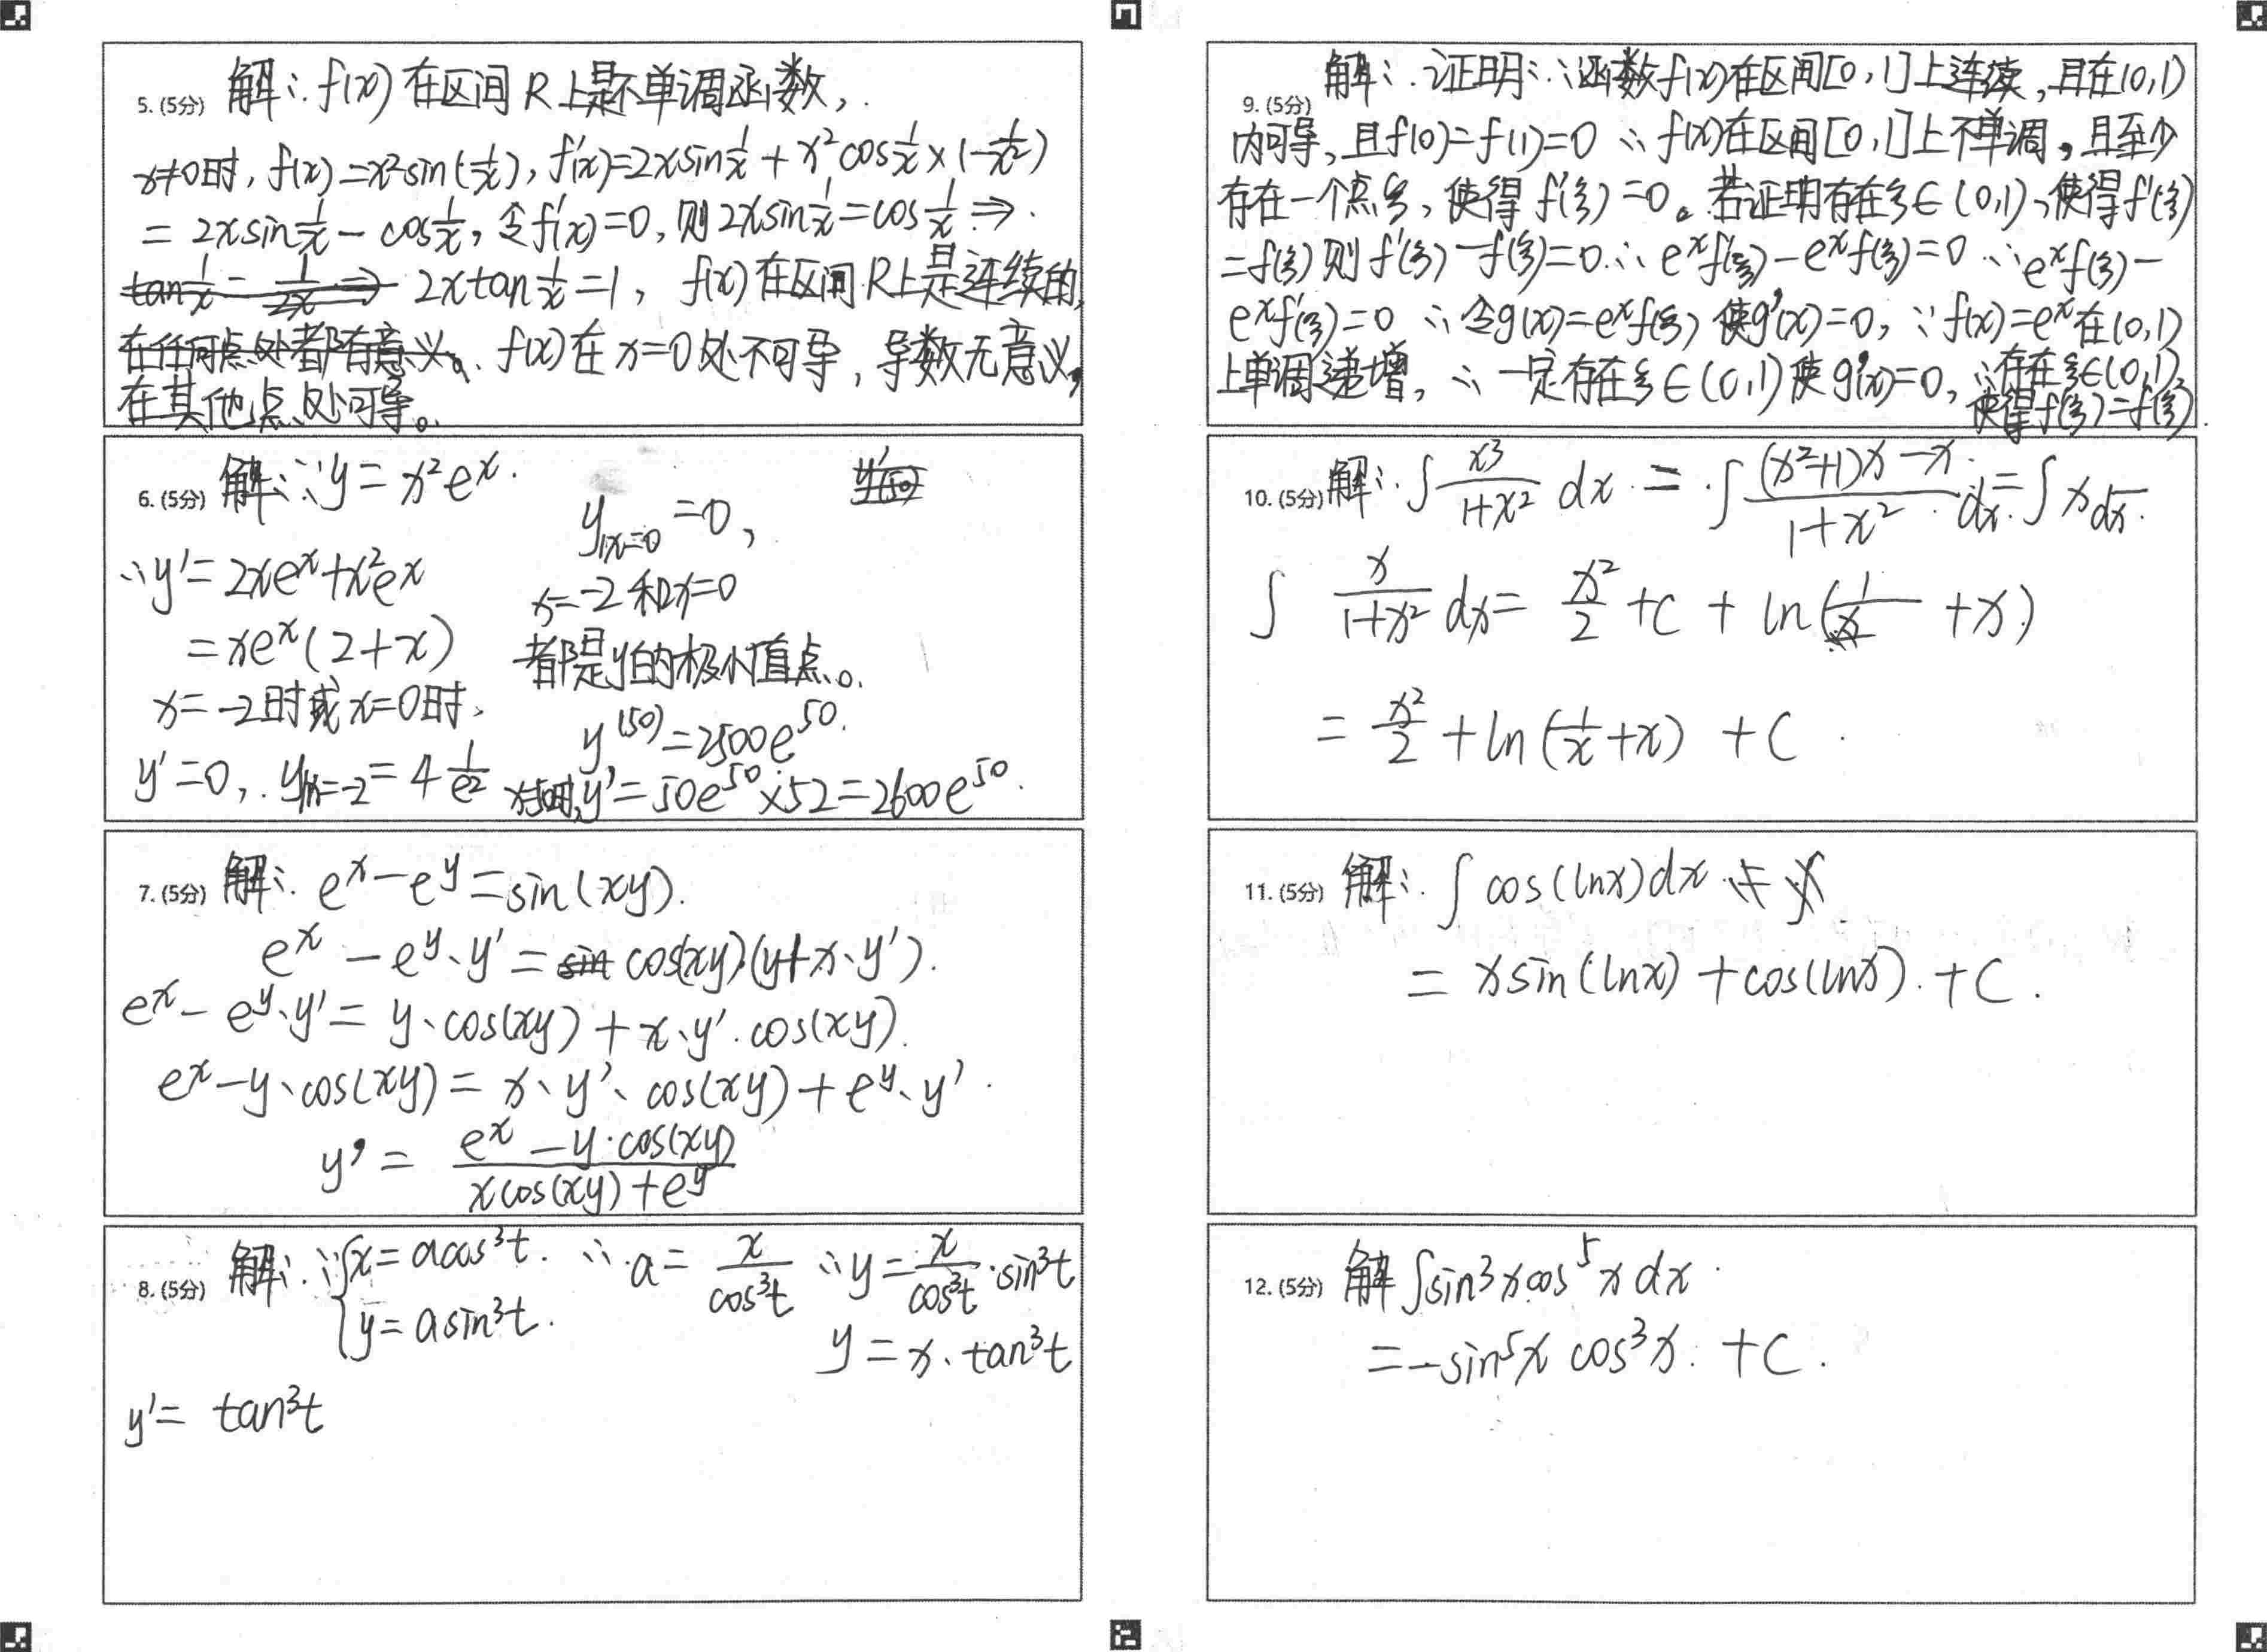 5. (5分) 解: f(x) 在区间 R 上是不单调函数,
x≠0时, f(x)=x²sin(1/x), f'(x)=2xsin1/x + x²cos1/x×(-1/x²)
= 2xsin1/x - cos1/x, 令f'(x)=0, 则 2xsin1/x=cos1/x ⇒
tan1/x = 1/2x ⇒ 2xtan1/x=1, f(x)在区间R上是连续的,
在任何点处都有意义。f(x)在x=0处不可导, 导数无意义,
在其他点处可导。
6. (5分) 解: ∵y=x²eˣ
∴y'=2xeˣ+x²eˣ
=xeˣ(2+x)
x=-2时或x=0时,
y'=0, y|x=-2=4 1/e²
y|x=0=0,
x=-2和x=0
都是y的极小值点。
y⁽⁵⁰⁾=2500e⁵⁰.
x=50时,y'=50e⁵⁰×52=2600e⁵⁰.
7. (5分) 解: eˣ-eʸ=sin(xy).
eˣ-eʸ·y'=sin cos(xy)·(y+x·y').
eˣ-eʸ·y'=y·cos(xy)+x·y'·cos(xy).
eˣ-y·cos(xy)=x·y'·cos(xy)+eʸ·y'.
y'= (eˣ-y·cos(xy))/(xcos(xy)+eʸ)
8. (5分) 解: ∵{x=acos³t. ∴a= x/cos³t ∴y= x/cos³t·sin³t
y=asin³t.
y=x·tan³t
y'= tan³t
9. (5分) 解: 证明: ∵函数f(x)在区间[0,1]上连续,且在(0,1)
内可导, 且f(0)=f(1)=0 ∴f(x)在区间[0,1]上不单调, 且至少
存在一个点ξ, 使得f'(ξ)=0。若证明存在ξ∈(0,1), 使得f'(ξ)
=f(ξ) 则f'(ξ)-f(ξ)=0 ∴eˣf'(ξ)-eˣf(ξ)=0 ∴eˣf(ξ)-
eˣf'(ξ)=0 ∴令g(x)=eˣf(ξ) 使g'(x)=0, ∵f(x)=eˣ在(0,1)
上单调递增, ∴一定存在ξ∈(0,1)使g'(x)=0, ∴存在ξ∈(0,1)
使得f'(ξ)=f(ξ).
10. (5分) 解: ∫ x³/(1+x²) dx = ∫ ((x²+1)x-x)/(1+x²) dx = ∫xdx-
∫ x/(1+x²) dx= x²/2 +C + ln(1/x +x)
= x²/2 +ln(1/x+x) +C.
11. (5分) 解: ∫cos(lnx)dx
= xsin(lnx)+cos(lnx)+C.
12. (5分) 解 ∫sin³xcos⁵xdx
=-sin⁵x cos³x +C.